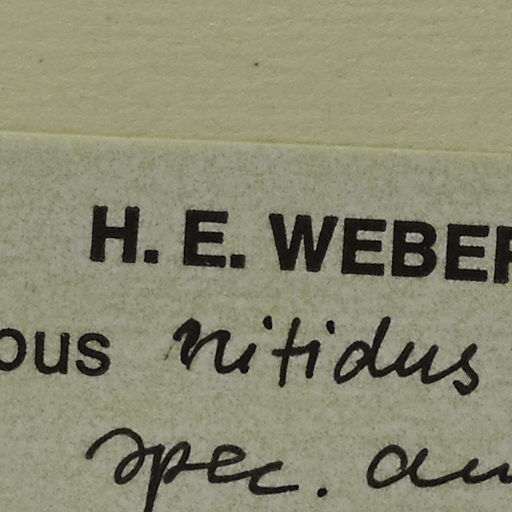 H. E. WEBER
bus nitidus
spec. au